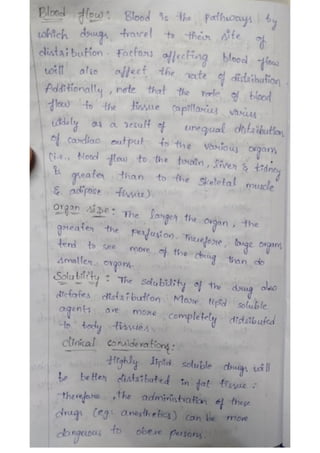 Blood flow: Blood is the pathways by
which drugs travel to their site of
distribution. Factors affecting blood flow
will also affect the rate of distribution
Additionally, note that the rate of blood
flow to the tissue capillaries varies
widely as a result of unequal distribution
of cardiac output to the various organs
(i.e., blood flow to the brain, liver & kidney
is greater than to the skeletal muscle
& adipose tissue).
Organ size: The larger the organ, the
greater the perfusion. Therefore, large organs
tend to see more of the drug than do
smaller organs.
Solubility: The solubility of the drug also
dictates distribution. More lipid soluble
agents are more completely distributed
to body tissues.
Clinical considerations:
Highly lipid soluble drugs will
be better distributed in fat tissue:
therefore, the administration of these
drugs (eg: anesthetics) can be more
dangerous to obese persons.